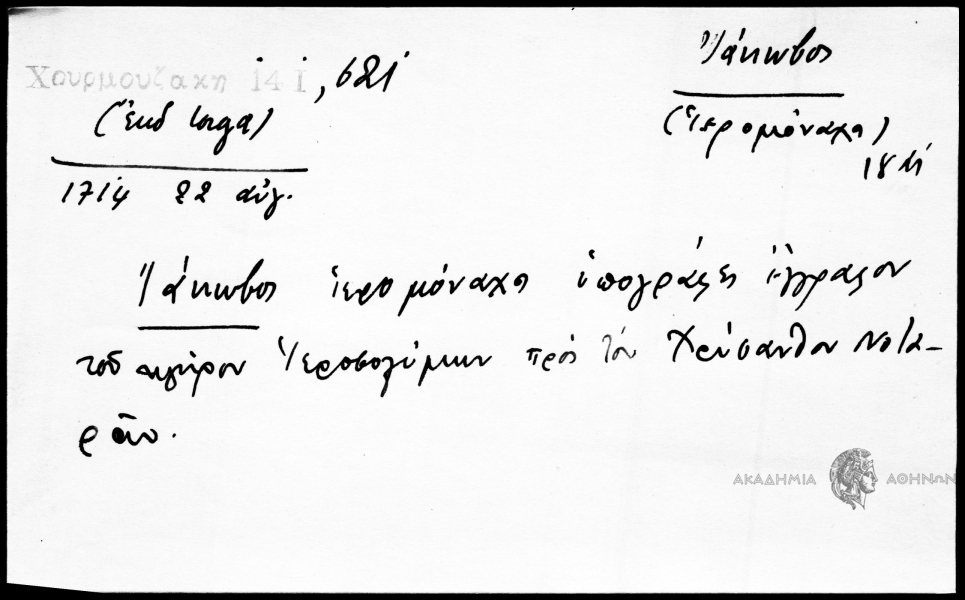 Χουρμουζακη 14 1, 621
(ἔκδ Iorga)
1714 22 αὐγ.
Ἰάκωβος
(ἱερομόναχος)
18 αἰ
Ἰάκωβος ἱερομόναχος ὑπογράφει ἔγγραφον
τοῦ κλήρου Ἱεροσολύμων πρός τόν Χρύσανθον Νοτα-
ρᾶν.
ΑΚΑΔΗΜΙΑ ΑΘΗΝΩΝ